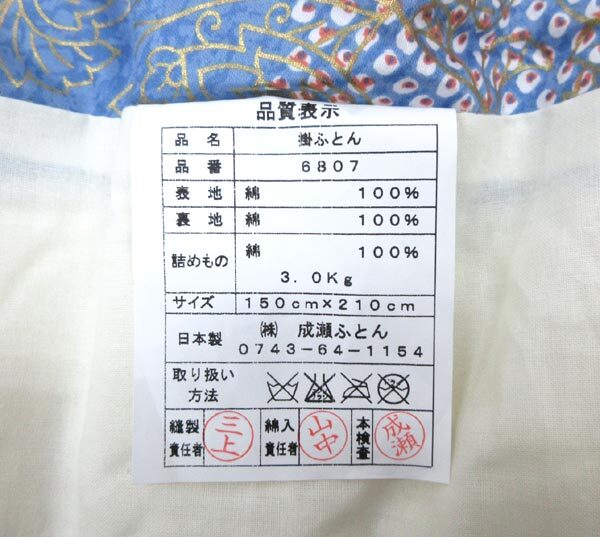 品質表示
品名 掛ふとん
品番 6807
表地 綿 100%
裏地 綿 100%
詰めもの 綿 100%
3.0Kg
サイズ 150cm×210cm
日本製 ㈱ 成瀬ふとん
0743-64-1154
取り扱い
方法
縫製
責任者 三上
綿入
責任者 山中
本検査 成瀬